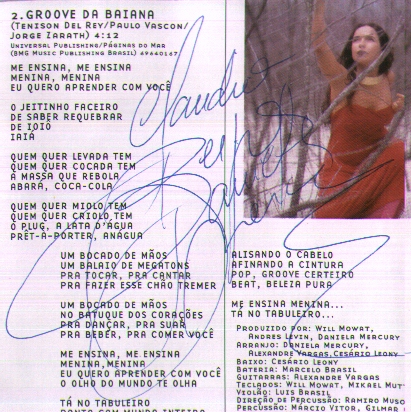 2.GROOVE DA BAIANA
(TENISON DEL REY/PAULO VASCON/
JORGE ZARATH) 4:12
UNIVERSAL PUBLISHING/PÁGINAS DO MAR
(BMG MUSIC PUBLISHING BRASIL) 69640167
ME ENSINA, ME ENSINA
MENINA, MENINA
EU QUERO APRENDER COM VOCÊ
O JEITINHO FACEIRO
DE SABER REQUEBRAR
DE IOIÔ
IAIÁ
QUEM QUER LEVADA TEM
QUEM QUER COCADA TEM
A MASSA QUE REBOLA
ABARÁ, COCA-COLA
QUEM QUER MIOLO TEM
QUEM QUER CRIOLO TEM
O PLUG, A LATA D'ÁGUA
PRÊT-À-PORTER, ANÁGUA
UM BOCADO DE MÃOS
UM BALAIO DE MEGATONS
PRA TOCAR, PRA CANTAR
PRA FAZER ESSE CHÃO TREMER
UM BOCADO DE MÃOS
NO BATUQUE DOS CORAÇÕES
PRA DANÇAR, PRA SUAR
PRA BEBER, PRA COMER VOCÊ
ME ENSINA, ME ENSINA
MENINA, MENINA
EU QUERO APRENDER COM VOCÊ
O OLHO DO MUNDO TE OLHA
TÁ NO TABULEIRO
PONTO COM MUNDO INTEIRO
ALISANDO O CABELO
AFINANDO A CINTURA
POP, GROOVE CERTEIRO
BEAT, BELEZA PURA
ME ENSINA MENINA...
TÁ NO TABULEIRO...
PRODUZIDO POR: WILL MOWAT,
ANDRES LEVIN, DANIELA MERCURY
ARRANJO: DANIELA MERCURY,
ALEXANDRE VARGAS, CESÁRIO LEONY
BAIXO: CESÁRIO LEONY
BATERIA: MARCELO BRASIL
GUITARRAS: ALEXANDRE VARGAS
TECLADOS: WILL MOWAT, MIKAEL MUT
VIOLÃO: LUIS BRASIL
DIREÇÃO DE PERCUSSÃO: RAMIRO MUSO
PERCUSSÃO: MÁRCIO VITOR, GILMAR
Claudio